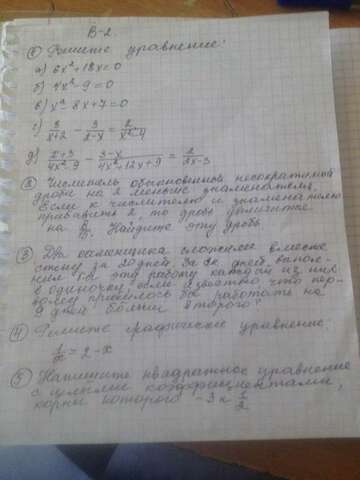 В-2.
① Решите уравнение:
а) 6x²+18x=0
б) 4x²-9=0
в) x²-8x+7=0
г) 3/(x+2) - 3/(2-x) = 2/(x²-4)
д) (2x+3)/(4x²-9) - (3-x)/(4x²+12x+9) = 2/(2x-3)
② Числитель обыкновенной несократимой
дроби на 2 меньше знаменателя.
Если к числителю и знаменателю
прибавить 2, то дробь
на Найдите эту дробь
③ Два каменщика сложили вместе
стену за 20 дней. За дней выпол-
эту работу каждый из них
в одиночку, если известно что пер-
вому пришлось бы работать на
9 дней больше второго?
④ Решите графически уравнение:
1/x = 2-x
⑤ Напишите квадратное уравнение
с целыми коэффициентами,
корни которого -3 и 1/2